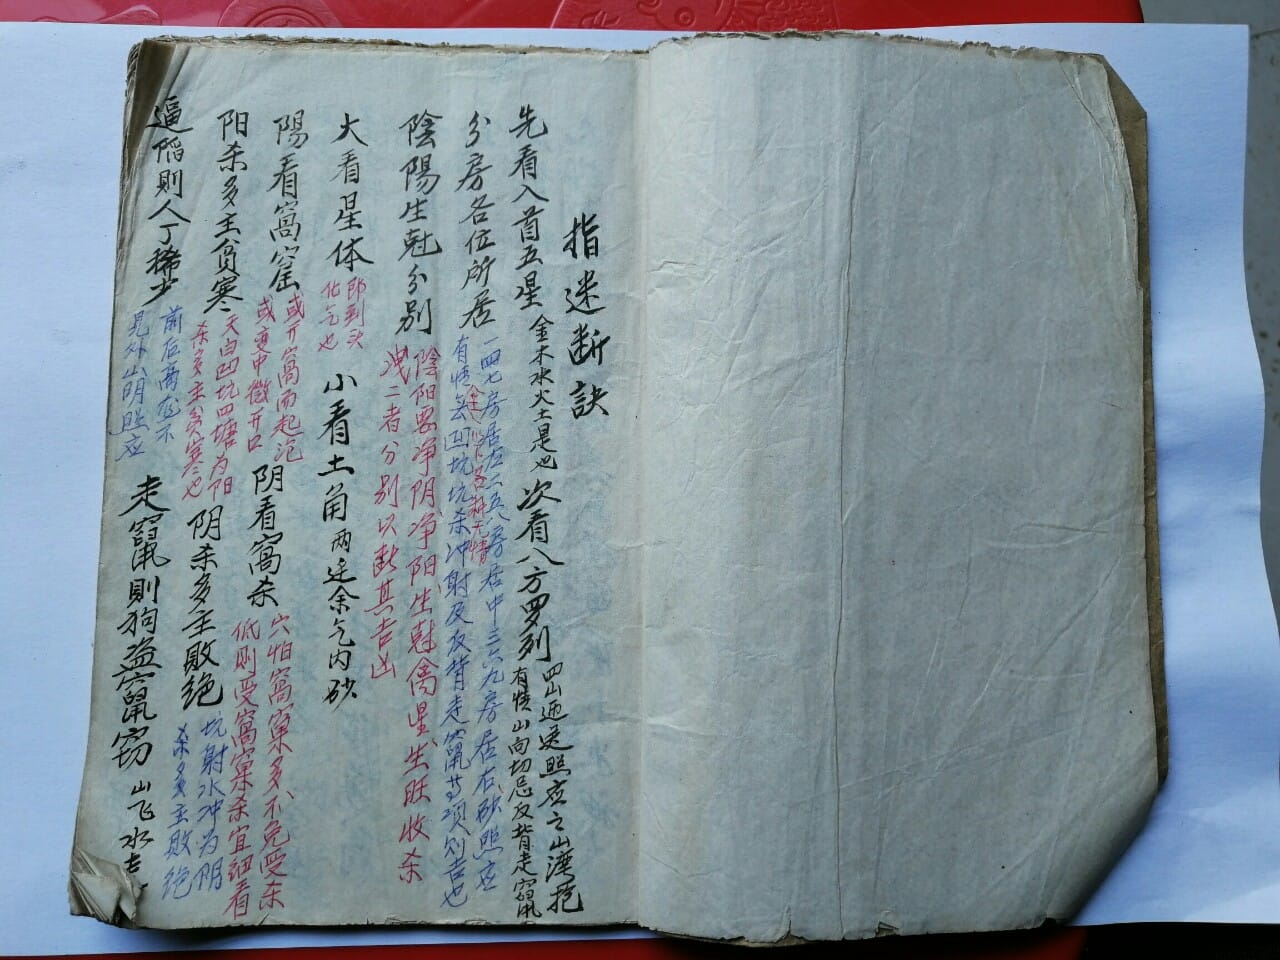 指迷断訣
先看入首五星
金木水火土是也
次看八方罗列
四山迎送照应之山湾抱
有情山向切忌反背走竄
分房各位所居
一四七房居左二五八房居中三六九房居右砂照应
有情無凹坑坑杀冲射及反背走竄等项则吉也
陰陽生尅分别
陰阳要净阴净阳生尅禽星生旺收杀
洩二者分别以断其吉凶
大看星体
即到头
化气也
小看土角
两边余气内砂
陽看窩窟
或开窩而起泡
或变中微开口
阴看窩杀
穴怕窩窠多不免受杀
低则受窩窠杀宜细看
阳杀多主貧寒
天白凹坑四塘为阳
杀多主貧寒也
阴杀多主敗絕
坑射水冲为阴
杀多主敗絕
逼陷則人丁稀少
前后高不
見外山阴照应
走竄則狗盗鼠窃
山飞水走